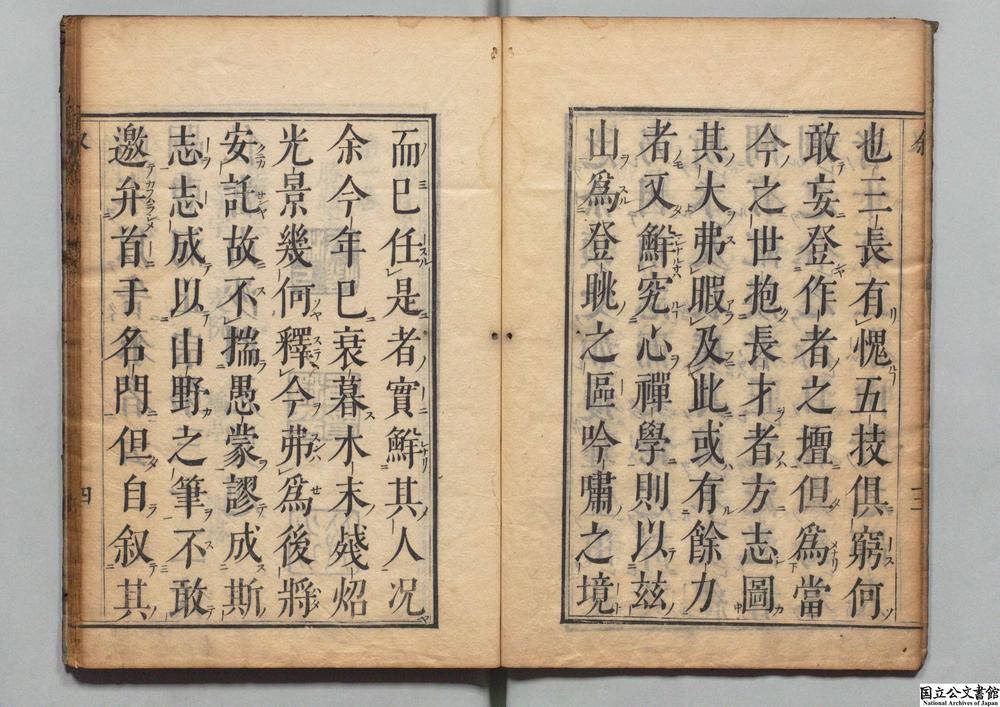 也三長有愧五技俱窮何
敢妄登作者之壇但爲當
今之世抱長才者方志圖
其大弗暇及此或有餘力
者又鮮究心禪學則以茲
山爲登眺之區吟嘯之境
而已任是者實鮮其人况
余今年已衰暮木末殘炤
光景幾何釋今弗爲後將
安託故不揣愚蒙謬成斯
志志成以山野之筆不敢
邀弁首手名門但自叙其
国立公文書館
National Archives of Japan